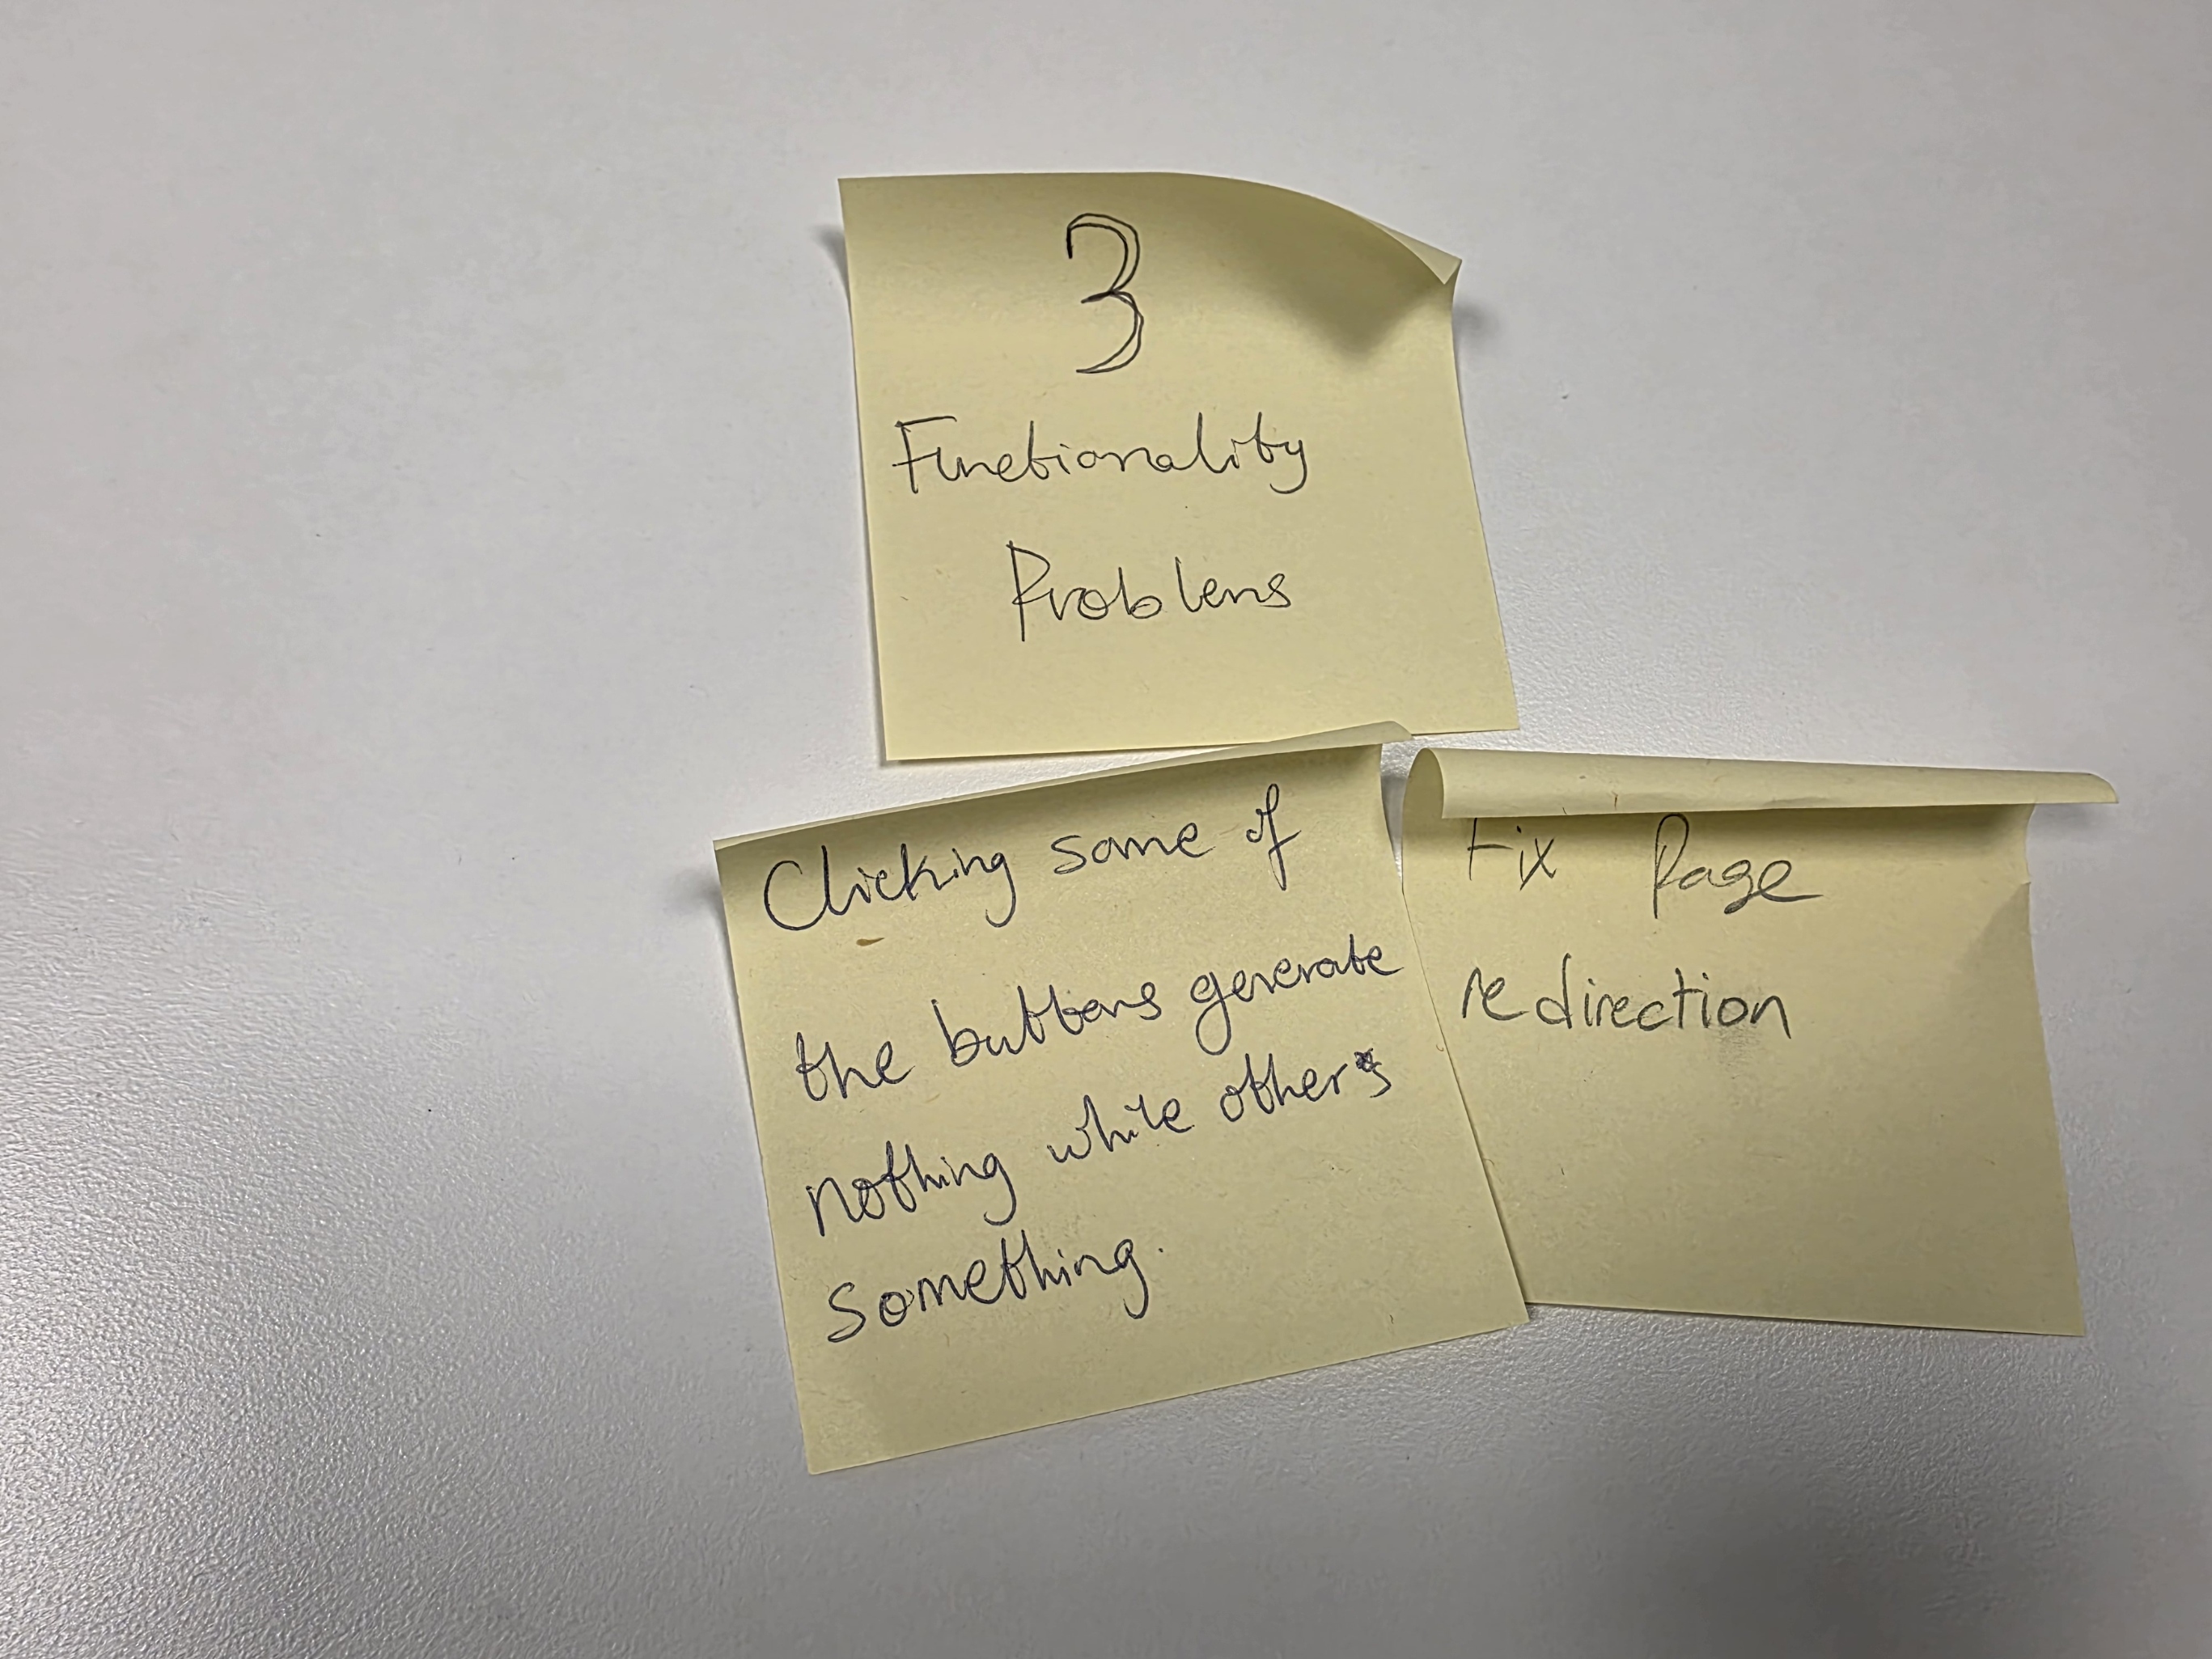 3
Functionality
Problems
Clicking some of
the buttons generate
nothing while others
something.
Fix Page
redirection